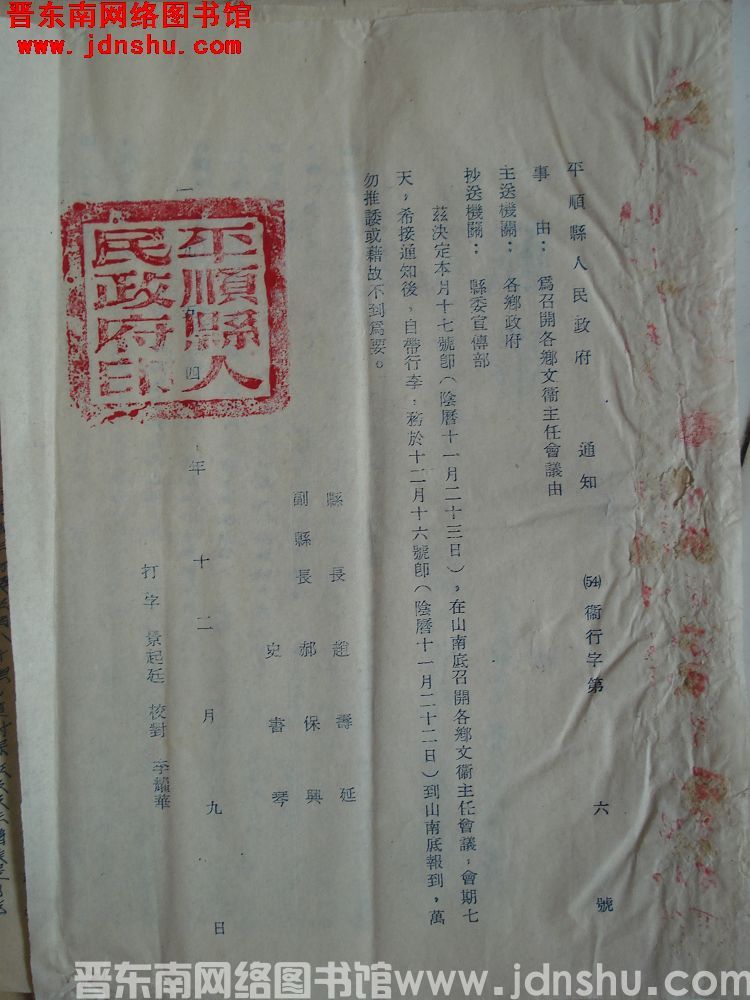 晋东南网络图书馆
www.jdnshu.com
平順縣人民政府 通知 (54)衞行字第 六 號
事 由：爲召開各鄉文衞主任會議由
主送機關：各鄉政府
抄送機關：縣委宣傳部
茲決定本月十七號卽(陰曆十一月二十三日)，在山南底召開各鄉文衞主任會議，會期七
天，希接通知後，自帶行李，務於十二月十六號卽(陰曆十一月二十二日)到山南底報到，萬
勿推諉或藉故不到爲要。
縣長 趙壽延
副縣長 郝保興
史書琴
一 四 年十二月九日
平順縣人
民政府印
打字 景起廷 校對 李韻華
晋东南网络图书馆www.jdnshu.com